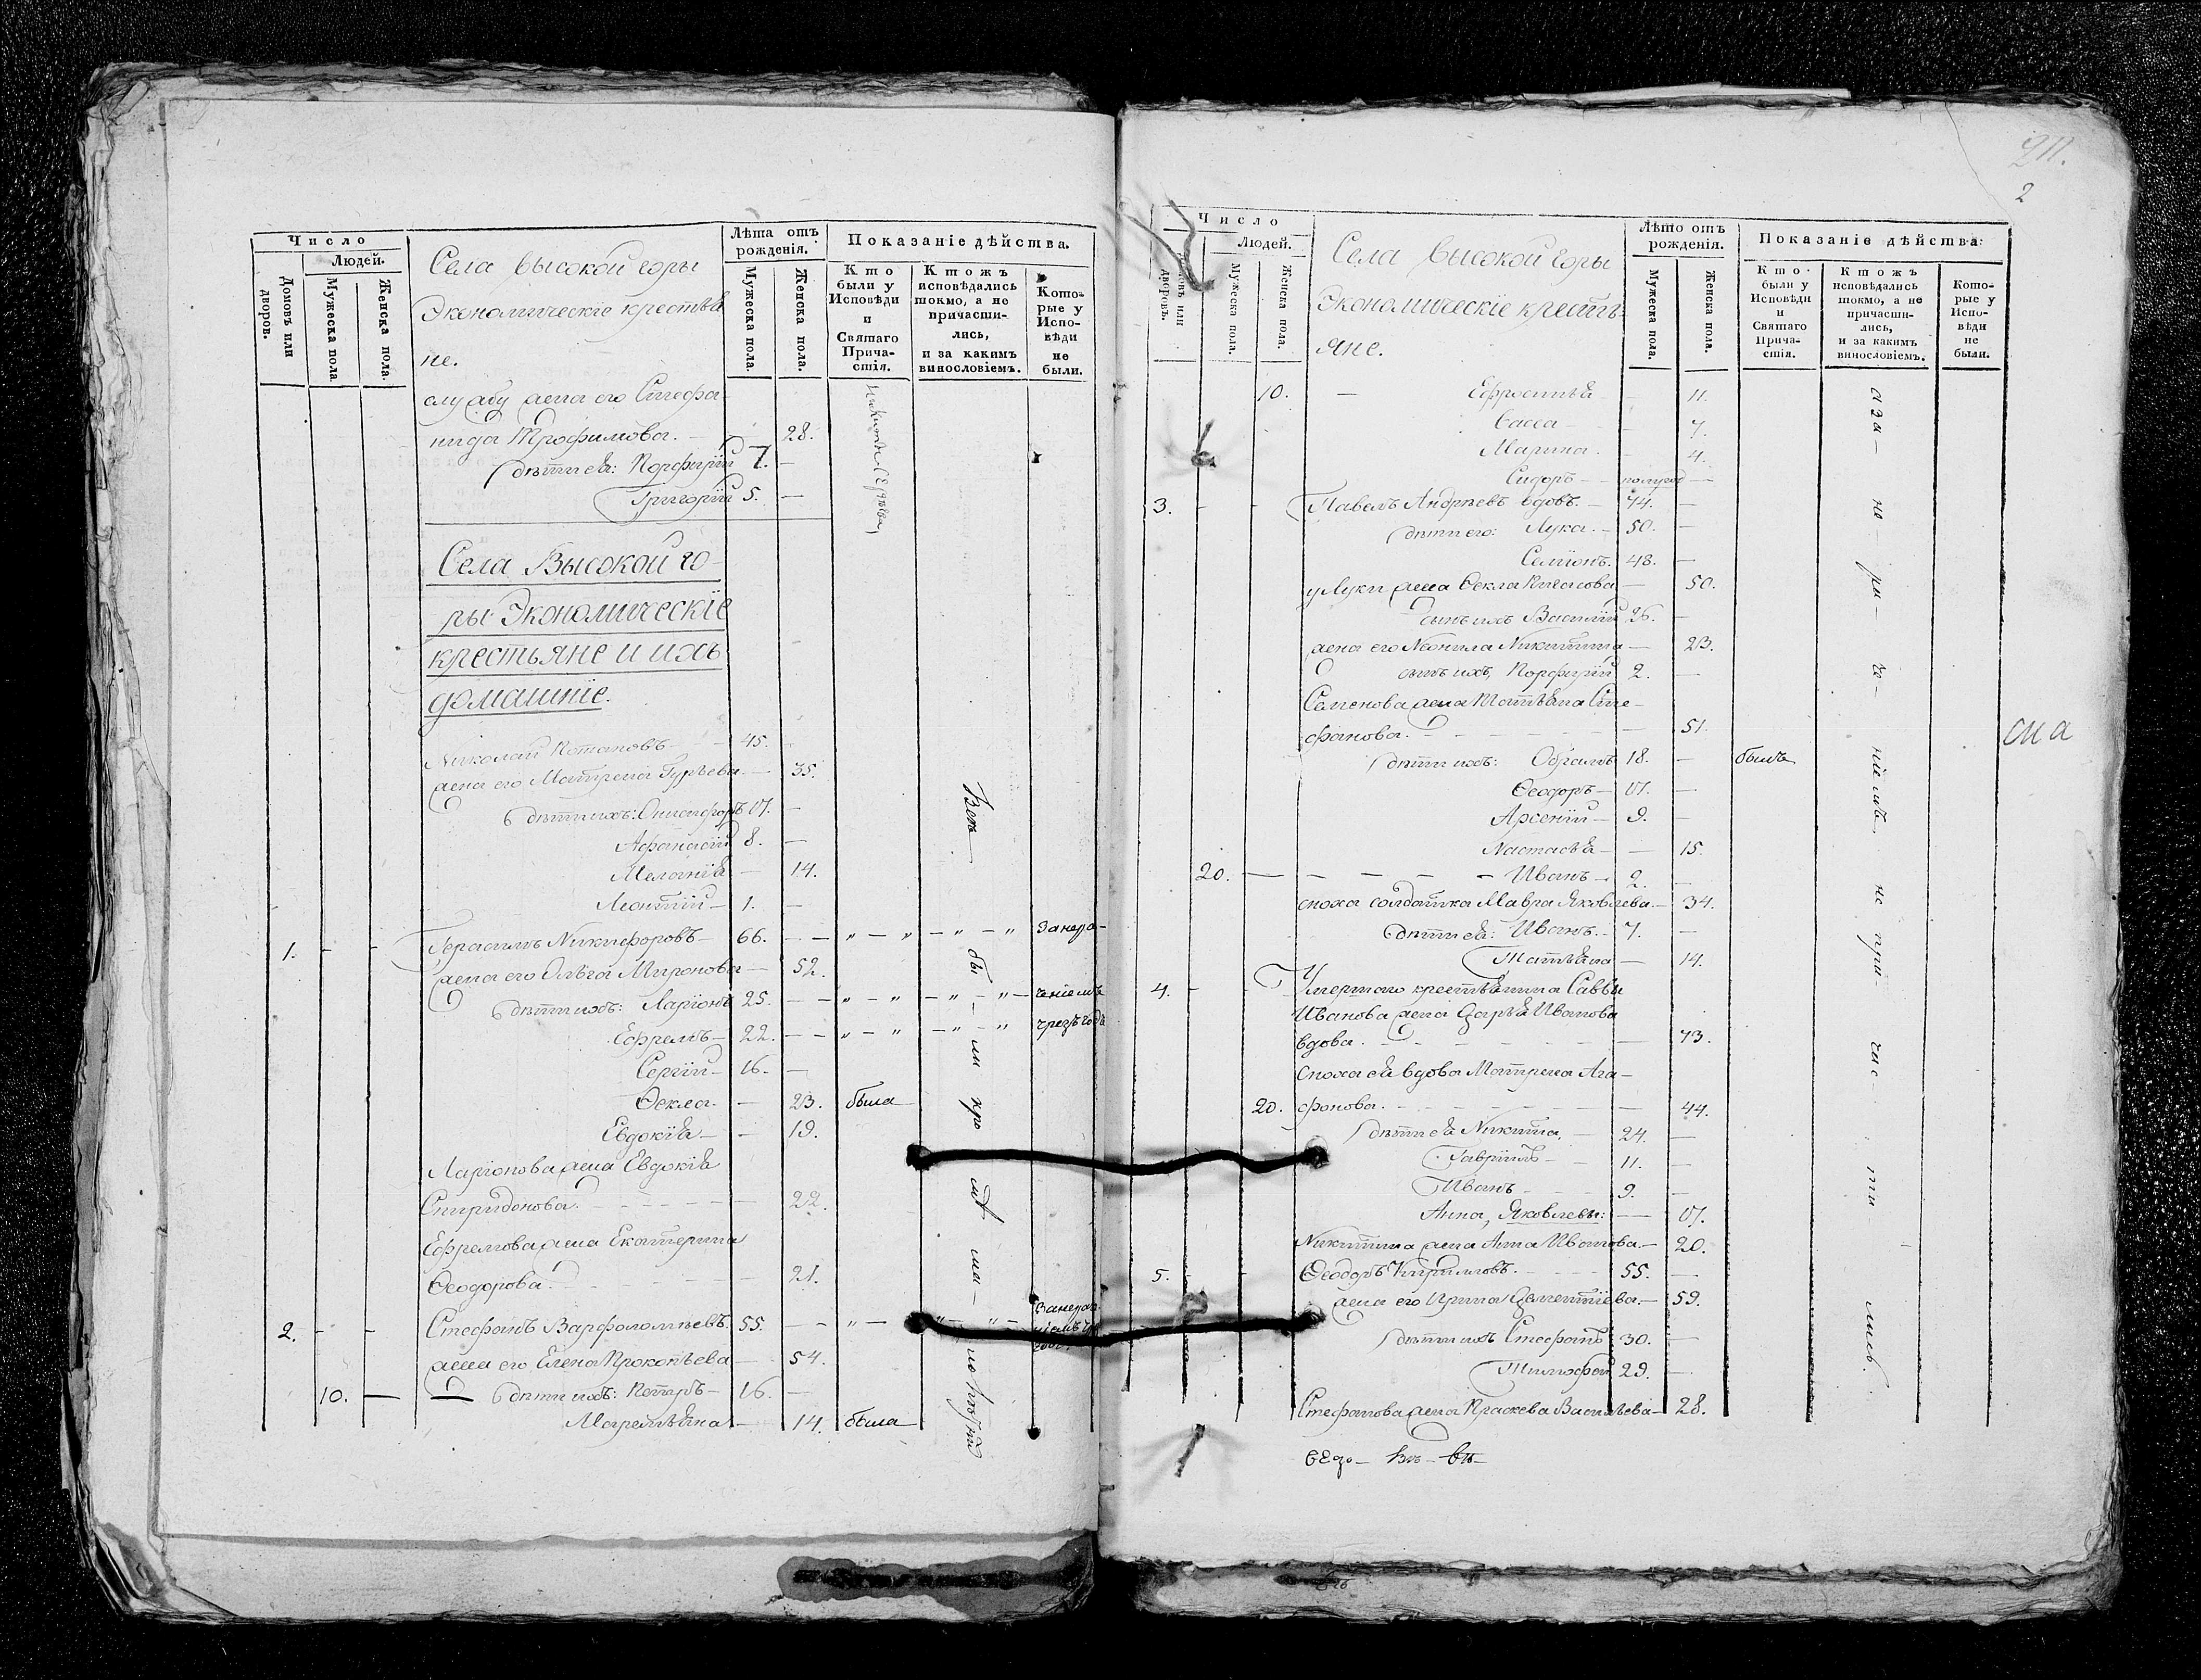 Число
Людей.
Домовъ или дворовъ.
Мужеска пола.
Женска пола.
Села высокой горы
Экономическіе крестья
не.
Лѣта отъ
рожденія.
Мужеска пола.
Женска пола.
Показаніе дѣйства.
Кто были у Исповѣди и Святаго Причастія.
Ктожъ исповѣдались токмо, а не причастились, и за какимъ винословіемъ.
Которые у Исповѣди не были.
службу жена его Стефа
нида Трофимова. 28.
дѣти ея: Порфирій 7. —
Григорій 5. —
Села Высокой го
ры Экономическіе
крестьяне и ихъ
домашніе.
Николай Потаповъ 45. —
жена его Матрена Гурьева — 35.
дѣти ихъ: Онисифоръ 17. —
Афанасій 8. —
Меланія — 14.
Леонтій 1. —
1. Герасимъ Никифоровъ 66. — занера-
жена его Ольга Миронова — 52.
дѣти ихъ: Ларіонъ 25. — ченіемъ
Ефремъ 22. — чрезъ годъ
Сергій 16. —
Ѳекла — 23. была
Евдокія — 19.
Ларіонова жена Евдокія
Спиридонова. — 22.
Ефремова жена Екатерина
Ѳеодорова. — 21.
2. Стефанъ Варфоломѣевъ 55. —
жена его Елена Прокопьева — 54.
10. — дѣти ихъ: Петръ 16. —
Маремьяна — 14. была
Всѣ
бы-
ли
кро
мѣ
ма-
211.
2
Число
Людей.
дворовъ.
Мужеска пола.
Женска пола.
Села высокой горы
Экономическіе кресть-
яне.
Лѣто отъ
рожденія.
Мужеска пола.
Женска пола.
Показаніе дѣйства:
Кто были у Исповѣди и Святаго Причастія.
Ктожъ исповѣдались токмо, а не причастились, и за какимъ винословіемъ.
Которые у Исповѣди не были.
10. — Ефросинья — 11.
Васса — 7.
Марина. — 4.
Сидоръ — полугод —
3. Павелъ Андрѣевъ вдовъ. — 74. —
дѣти его: Лука. 50. —
Семіонъ. 48. —
у Луки жена Ѳекла — 50.
сынъ ихъ Василій 26. —
жена его Неонила Никитина — 23.
сынъ ихъ Порфирій 2. —
Семенова жена Татьяна Сте-
фанова. — 51.
дѣти ихъ: Абрамъ 18. — былъ
Ѳеодоръ 17. —
Арсеній 9. —
Настасья — 15.
20. — Иванъ 2. —
сноха солдатка Мавра Яковлева. — 34.
дѣти ея: Иванъ. 7. —
Татьяна — 14.
4. Умершаго крестьянина Саввы
Иванова жена Дарья Иванова
вдова. — 73.
сноха ея вдова Матрена Ага-
20. фонова. — 44.
дѣти ея Никита, 24. —
Гавріилъ 11. —
Иванъ 9. —
Анна, Яковлевы: — 17.
Никитина жена Анна Иванова. — 20.
5. Ѳеодоръ Кириловъ. 55. —
жена его Ирина Дементіева. — 59.
дѣти ихъ Стефанъ 30. —
Тимофей 29. —
Стефанова жена Праскева Васильева — 28.
не
ніемъ,
не
при-
час-
ти-